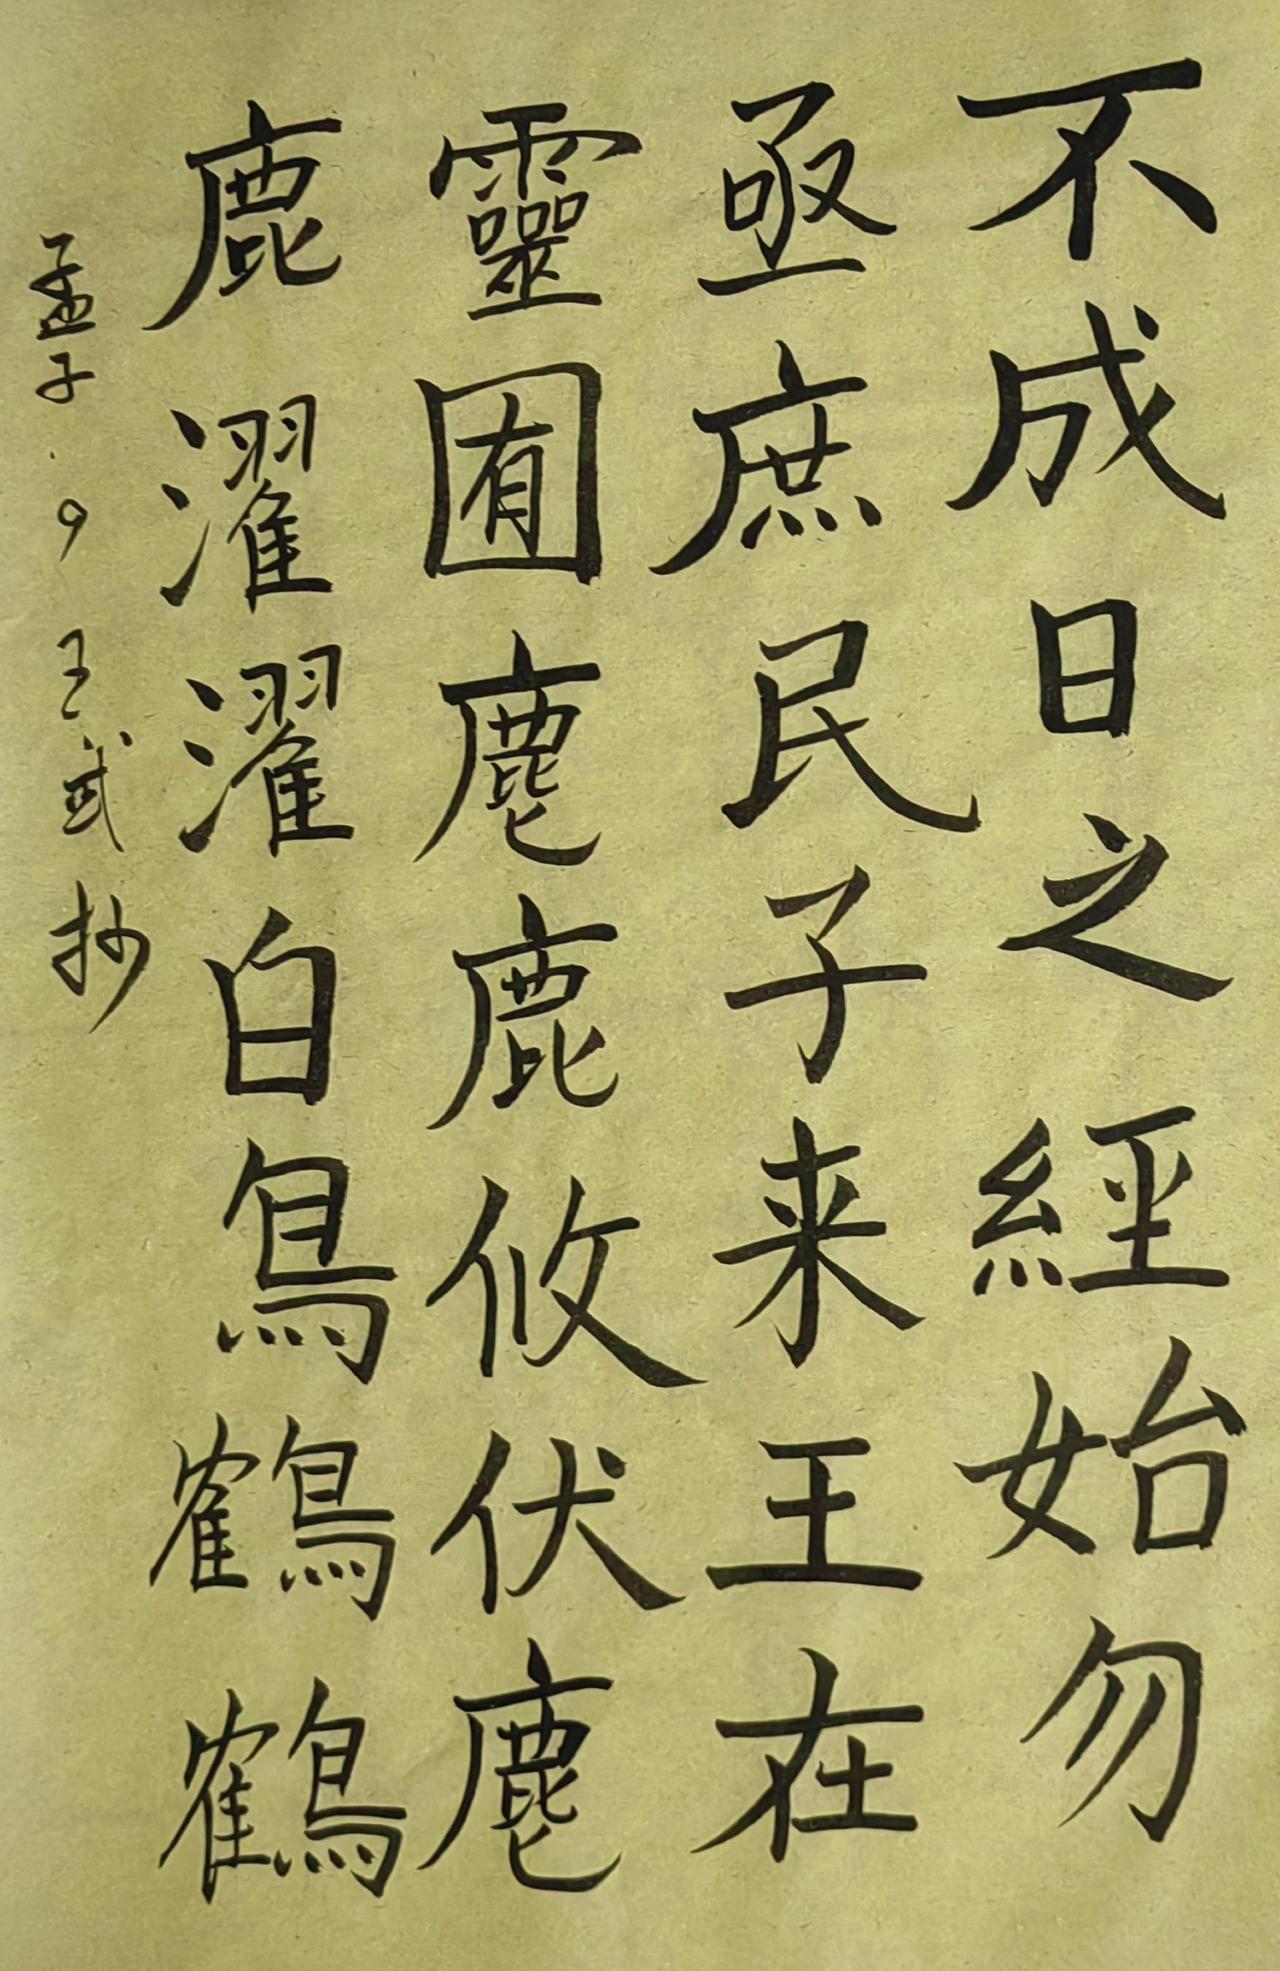 不成日之經始勿
亟庶民子来王在
靈囿麀鹿攸伏麀
鹿濯濯白鳥鶴鶴
孟子.9王武抄